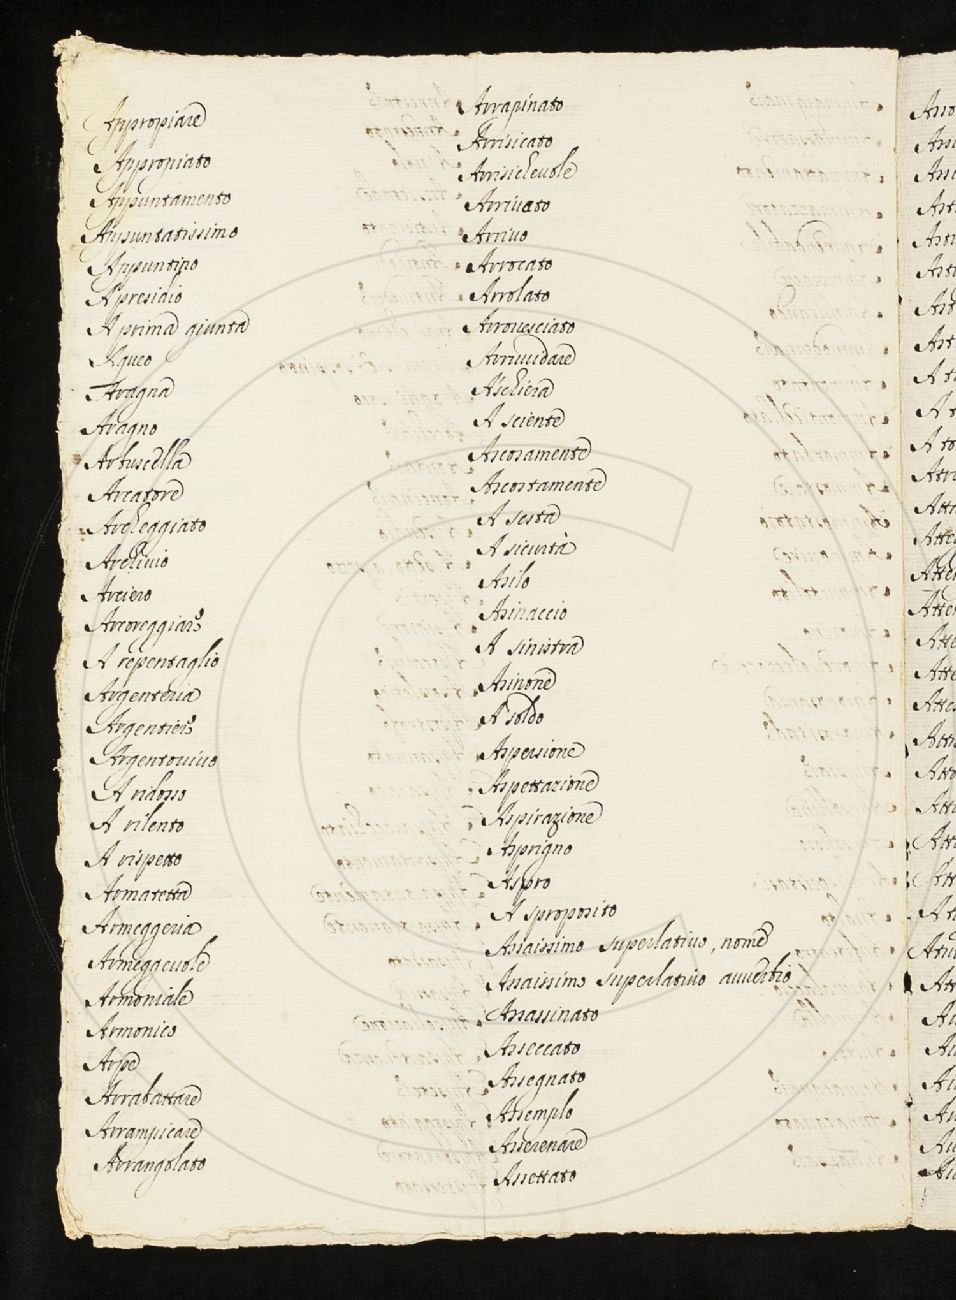 Appropiare
Appropiato
Appuntamento
Appuntatissimo
Appuntino
A presidio
A prima giunta
Aqueo
Aragna
Aragno
Arbuscella
Arcatore
Archeggiato
Archivio
Arciero
Arcoreggiare
A repentaglio
Argenteria
Argentiere
Argentovivo
A ridosso
A rilento
A rispetto
Armatetta
Armeggeria
Armeggevole
Armoniale
Armonico
Arpe
Arrabattare
Arrampicare
Arrangolato
Arrapinato
Arrisicato
Arrisichevole
Arrivato
Arrivo
Arrocato
Arrolato
Arrovesciato
Arruvidare
A schiera
A sciente
Ascosamente
Ascostamente
A sesta
A sicurtà
Asilo
Asinaccio
A sinistra
Asinone
A soldo
Aspersione
Aspettazione
Aspirazione
Asprigno
Aspro
A sproposito
Assaissimo superlativo, nome
Assaissimo superlativo avverbio
Assassinato
Asseccato
Assegnato
Assemplo
Asserenare
Assettato